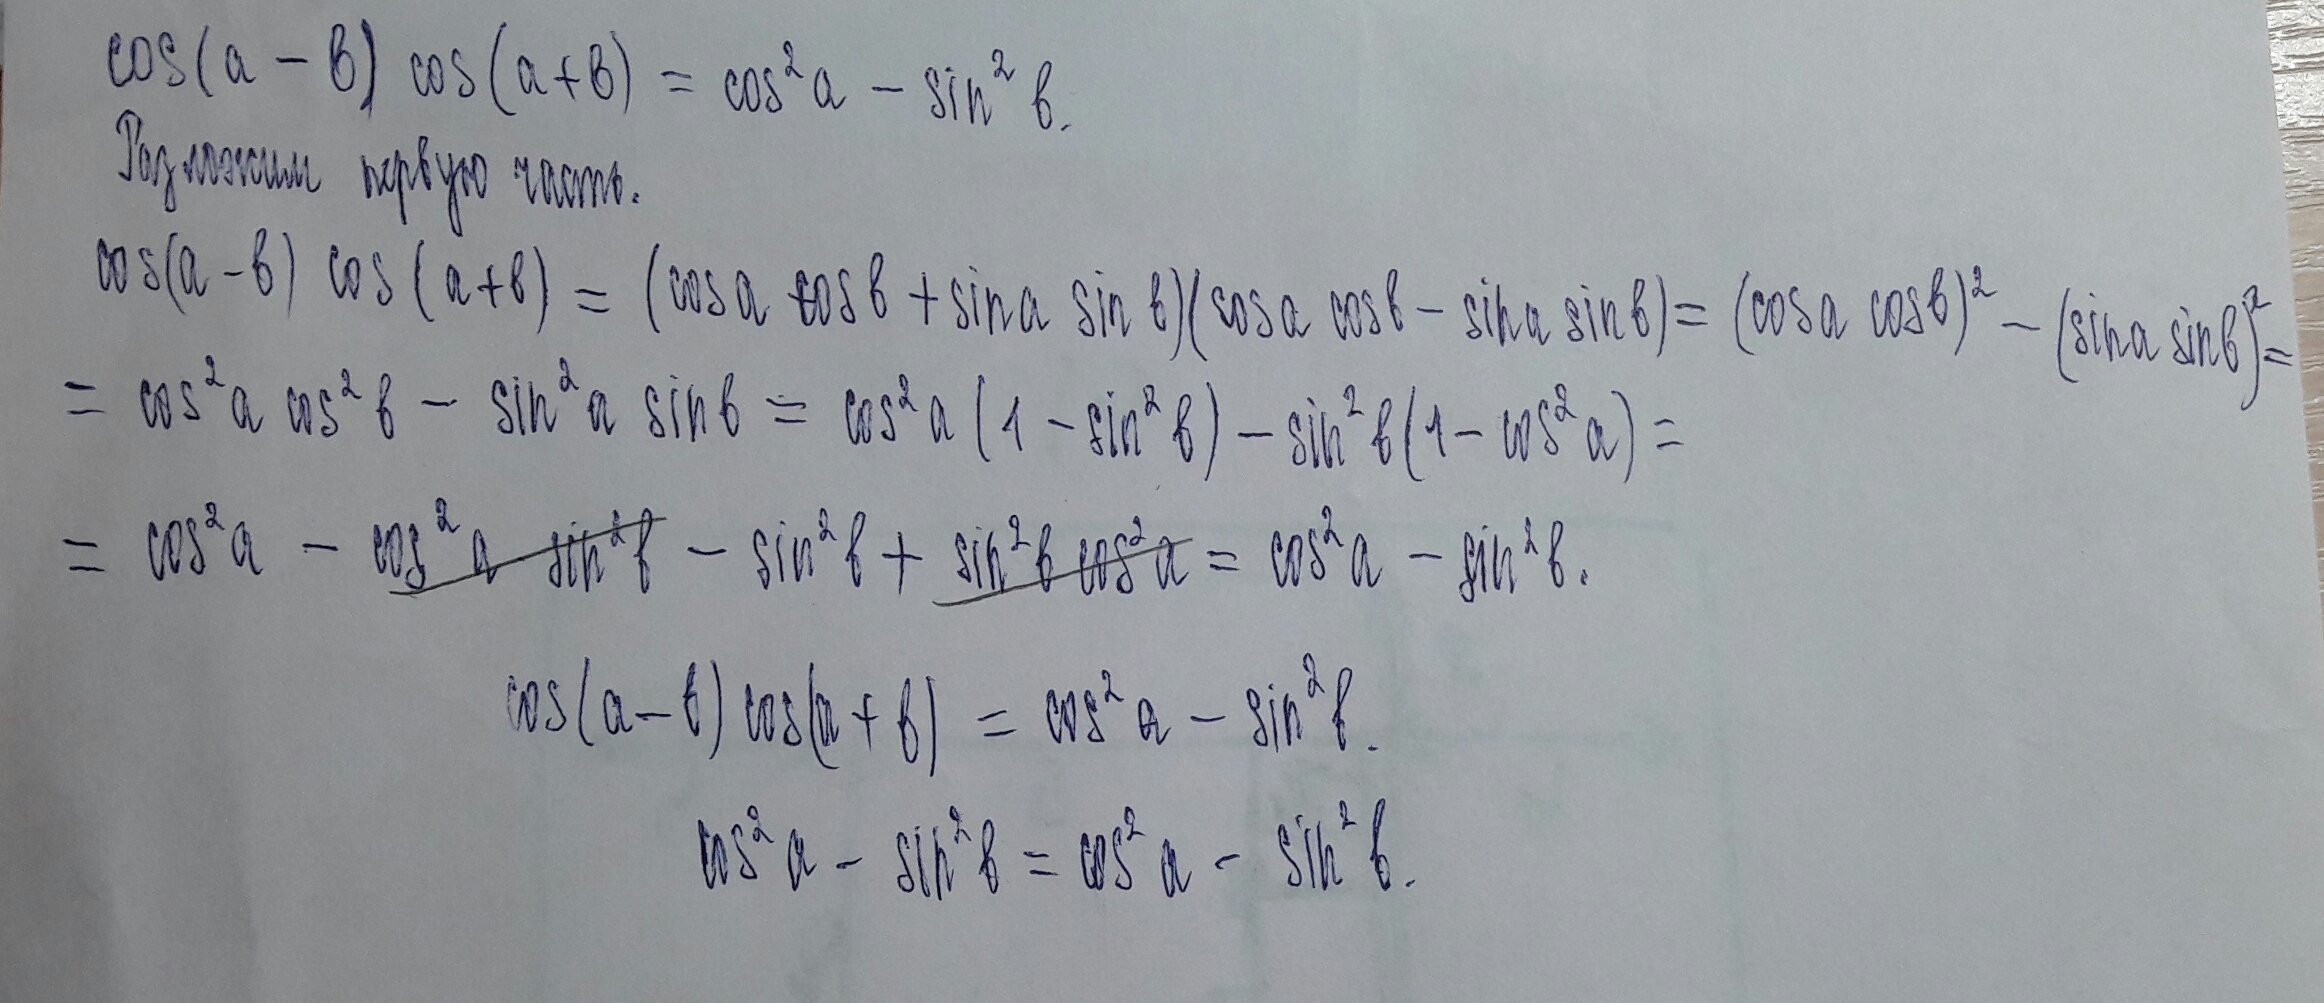 cos(a – в) cos(a+в) = cos²a – sin²в.
Разложим первую часть.
cos(a–в) cos(a+в) = (cosa cosв + sina sinв)(cosa cosв – sina sinв) = (cosa cosв)² – (sina sinв)² =
= cos²a cos²в – sin²a sinв = cos²a (1 – sin²в) – sin²в(1 – cos²a) =
= cos²a – cos²a sin²в – sin²в + sin²в cos²a = cos²a – sin²в.
cos(a–в) cos(a+в) = cos²a – sin²в.
cos²a – sin²в = cos²a – sin²в.